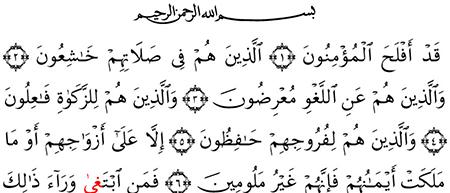 بسم الله الرحمن الرحيم
قَدْ أَفْلَحَ الْمُؤْمِنُونَ ﴿١﴾ الَّذِينَ هُمْ فِى صَلَاتِهِمْ خَـٰشِعُونَ ﴿٢﴾
وَالَّذِينَ هُمْ عَنِ اللَّغْوِ مُعْرِضُونَ ﴿٣﴾ وَالَّذِينَ هُمْ لِلزَّكَوٰةِ فَـٰعِلُونَ
﴿٤﴾ وَالَّذِينَ هُمْ لِفُرُوجِهِمْ حَـٰفِظُونَ ﴿٥﴾ إِلَّا عَلَىٰٓ أَزْوَٰجِهِمْ أَوْ مَا
مَلَكَتْ أَيْمَـٰنُهُمْ فَإِنَّهُمْ غَيْرُ مَلُومِينَ ﴿٦﴾ فَمَنِ ابْتَغَىٰ وَرَآءَ ذَٰلِكَ